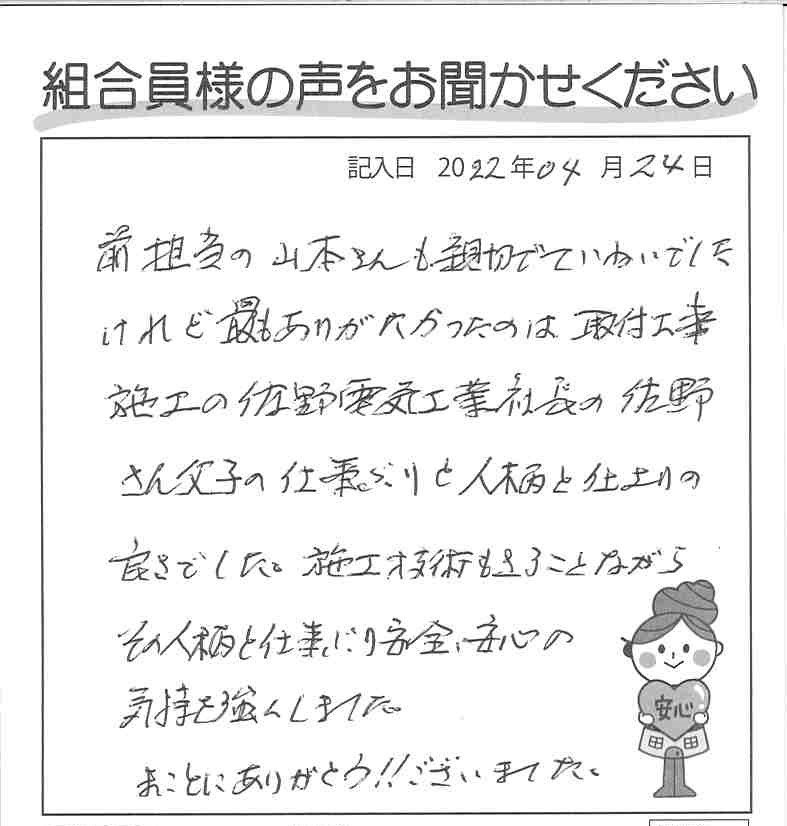 組合員様の声をお聞かせください
記入日 2022年04月24日
前担当の山本さんも親切でていねいでした
けれど最もありがたかったのは取付工事
施工の佐野電気工業社長の佐野
さん父子の仕事ぶりと人柄と仕上りの
良さでした。施工技術もさることながら
その人柄と仕事ぶり安全、安心の
気持を強くしました。
安心
まことにありがとう!!ございました。